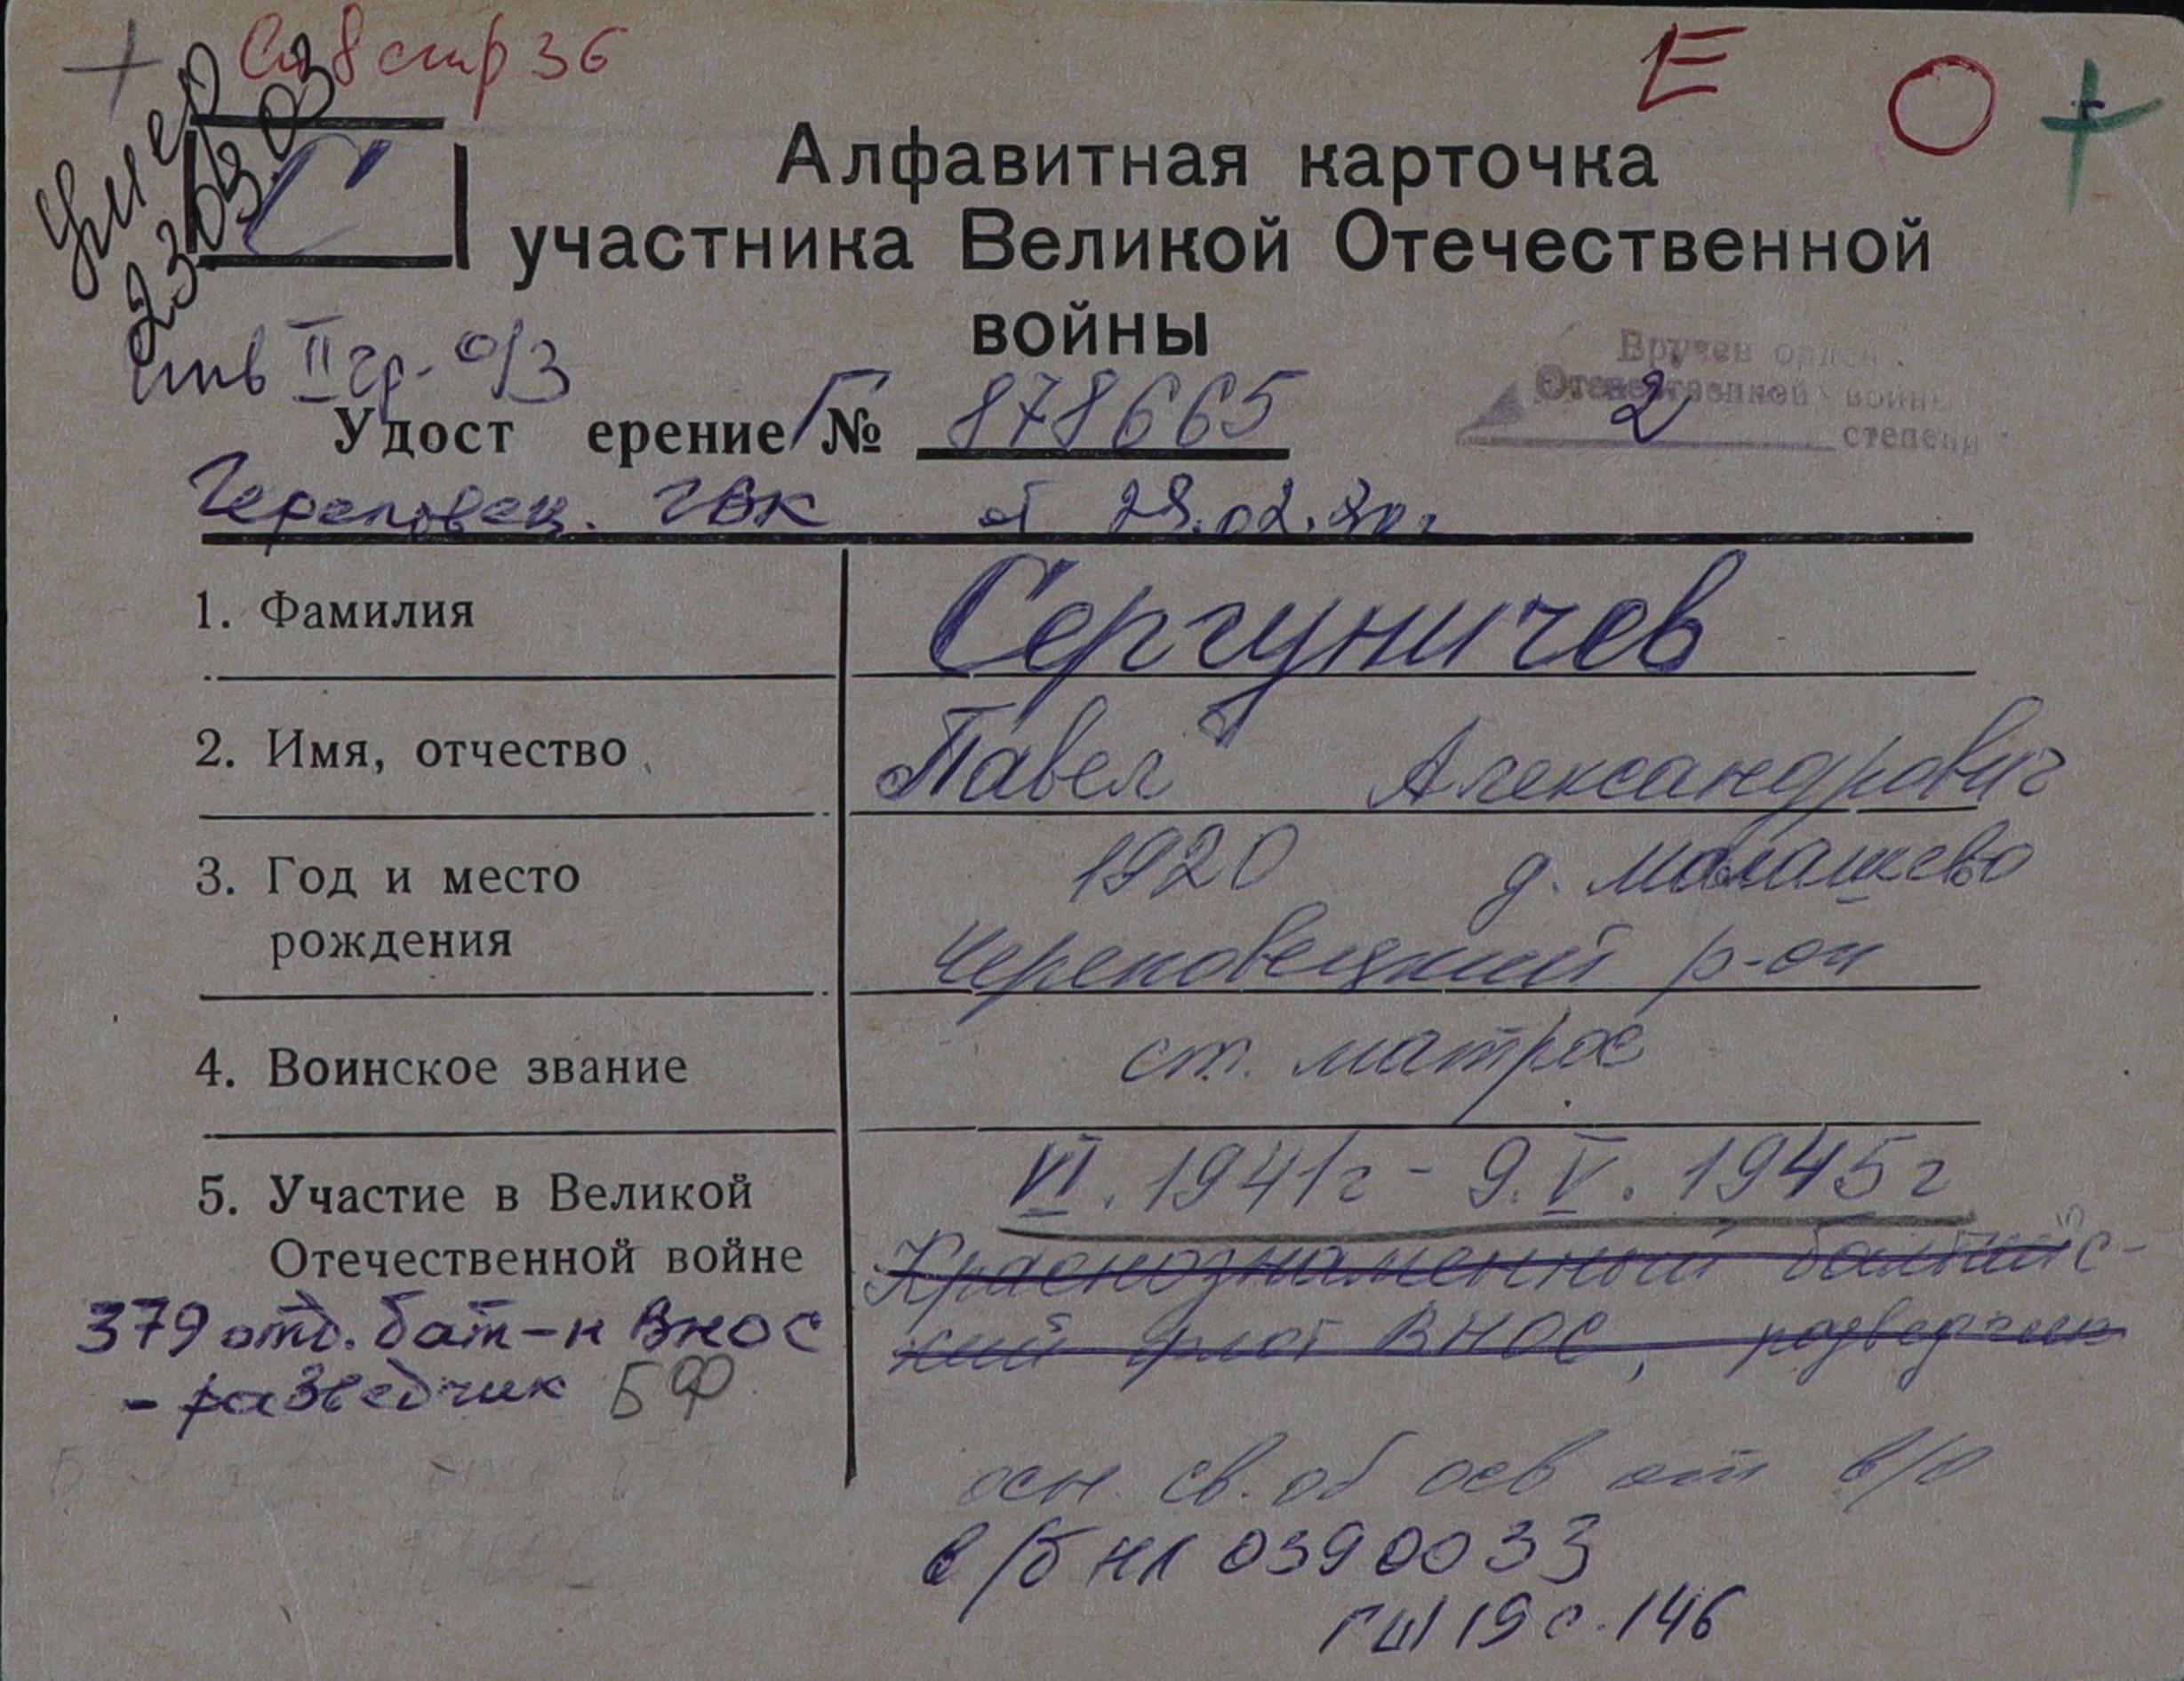 + Сп 8 стр 36
Е О +
умер
23.03.03
С
Алфавитная карточка
участника Великой Отечественной
войны
инв II гр. о/з
Вручен орден
Отечественной войны
2 степени
Удост ерение Г № 878665
Череповец. ГВК от 28.02.80г
1. Фамилия
Сергуничев
2. Имя, отчество
Павел Александрович
3. Год и место
рождения
1920 д. Малашево
Череповецкий р-он
4. Воинское звание
ст. матрос
5. Участие в Великой
Отечественной войне
VI. 1941г - 9. V. 1945г
Краснознаменный балтийс-
кий флот ВНОС, разведчик
379 отд. бат-н ВНОС
- разведчик БФ
осн. св. об осв от в/о
в/б НЛ 0390033
ГШ 19 с. 146